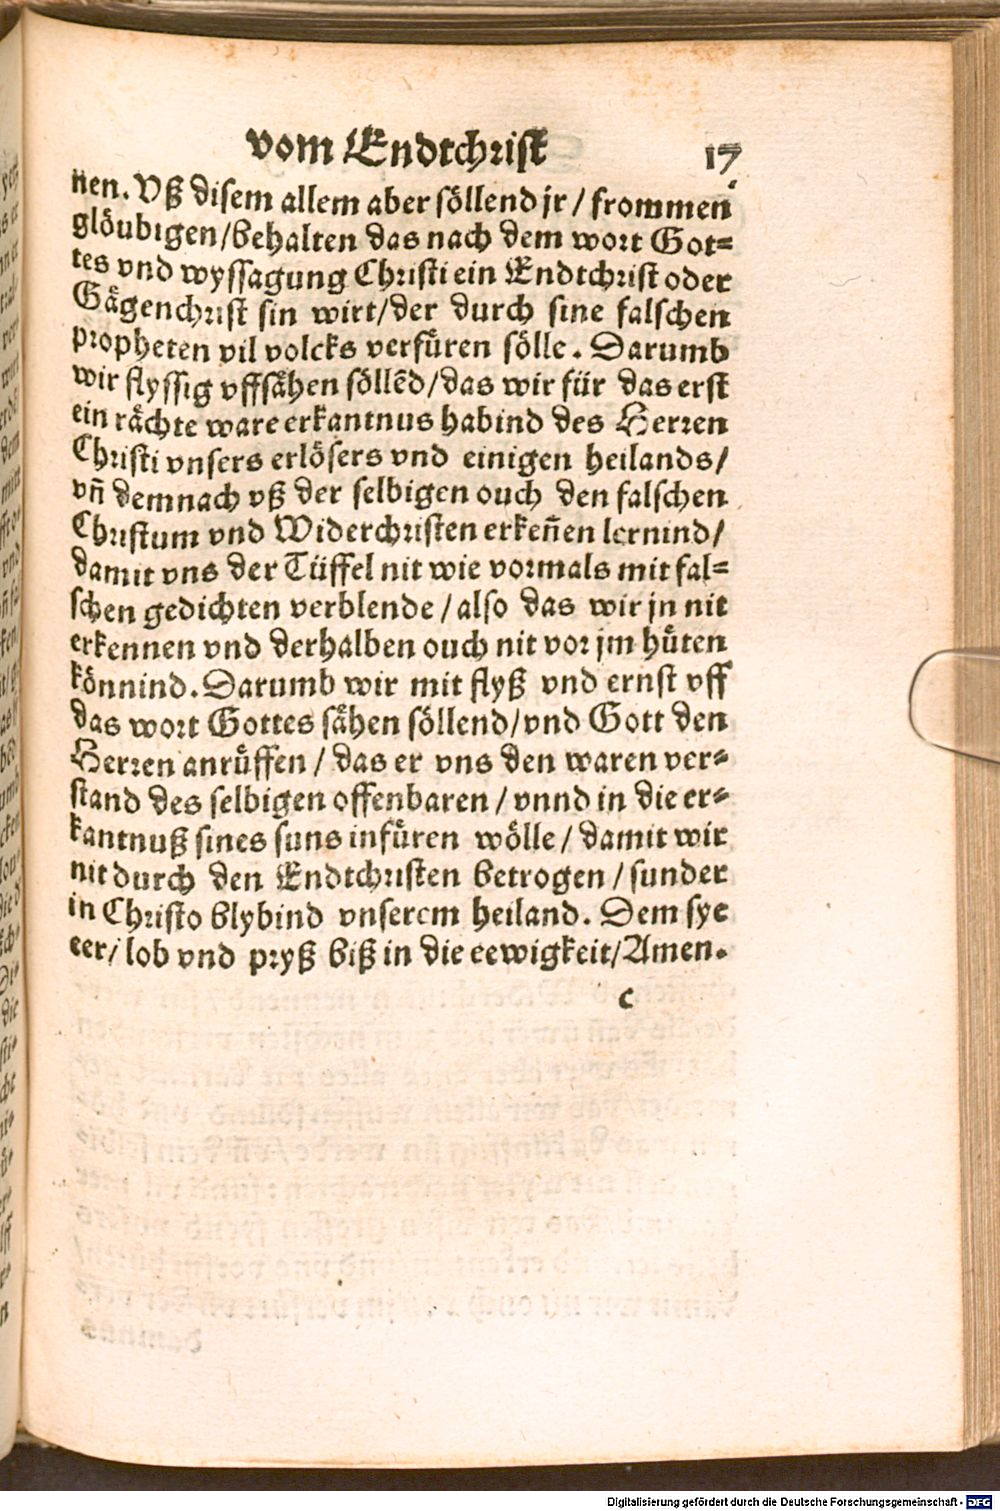 vom Endtchrist 17
nen. Vß disem allem aber söllend jr / frommen
glöubigen / behalten das nach dem wort Got=
tes vnd wyssagung Christi ein Endtchrist oder
Gägenchrist sin wirt / der durch sine falschen
propheten vil volcks verfüren sölle. Darumb
wir flyssig vffsähen söllēd / das wir für das erst
ein rächte ware erkantnus habind des Herren
Christi vnsers erlösers vnd einigen heilands /
vñ demnach vß der selbigen ouch den falschen
Christum vnd Widerchristen erkeñen lernind /
damit vns der Tüffel nit wie vormals mit fal=
schen gedichten verblende / also das wir jn nit
erkennen vnd derhalben ouch nit vor jm hüten
könnind. Darumb wir mit flyß vnd ernst vff
das wort Gottes sähen söllend / vnd Gott den
Herren anrüffen / das er vns den waren ver=
stand des selbigen offenbaren / vnnd in die er=
kantnuß sines suns infüren wölle / damit wir
nit durch den Endtchristen betrogen / sunder
in Christo blybind vnserem heiland. Dem sye
eer / lob vnd pryß biß in die eewigkeit / Amen.
c
Digitalisierung gefördert durch die Deutsche Forschungsgemeinschaft - DFG